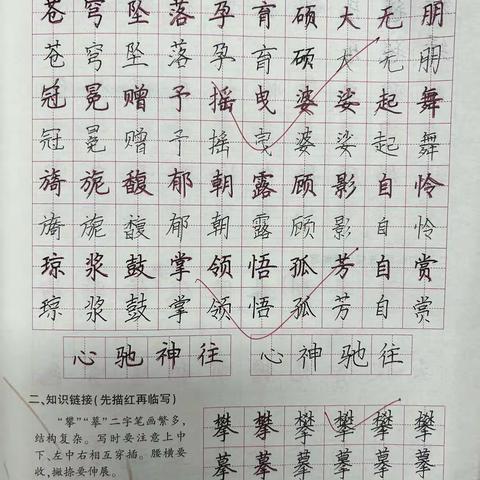 苍穹坠落孕育硕大无朋
苍穹坠落孕育硕大无朋
冠冕赠予摇曳婆娑起舞
冠冕赠予摇曳婆娑起舞
旖旎馥郁朝露顾影自怜
旖旎馥郁朝露顾影自怜
琼浆鼓掌领悟孤芳自赏
琼浆鼓掌领悟孤芳自赏
心驰神往 心神驰往
二、知识链接(先描红再临写)
“攀”“摹”二字笔画繁多,
结构复杂。写时要注意上中
下、左中右相互穿插。腰横要
收,撇捺要伸展。
攀攀攀攀攀攀
摹摹摹摹摹摹